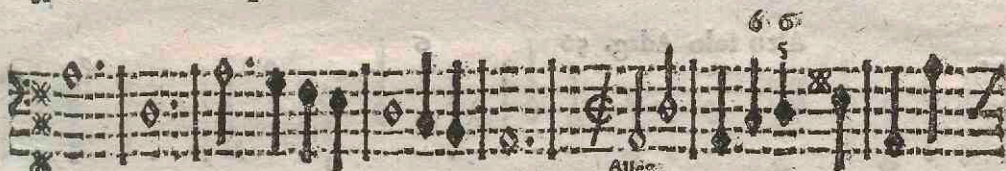 6 6
5
Alleg.